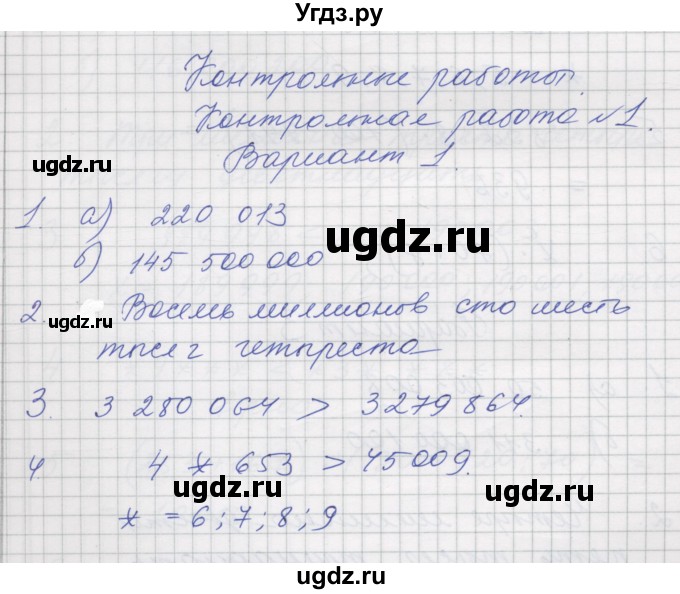 Угдз.ру
Контрольные работы.
Контрольная работа №1.
Вариант 1.
ugdz.ru
1. а) 220 013
ugdz.ru
б) 145 500 000
2. Восемь миллионов сто шесть
ugdz.ru
тысяч четыреста
3. 3 280 064 > 3279864.
4 4 * 653 > 45009.
ugdz.ru
ugdz.ru
* = 6; 7; 8; 9
ugdz.ru